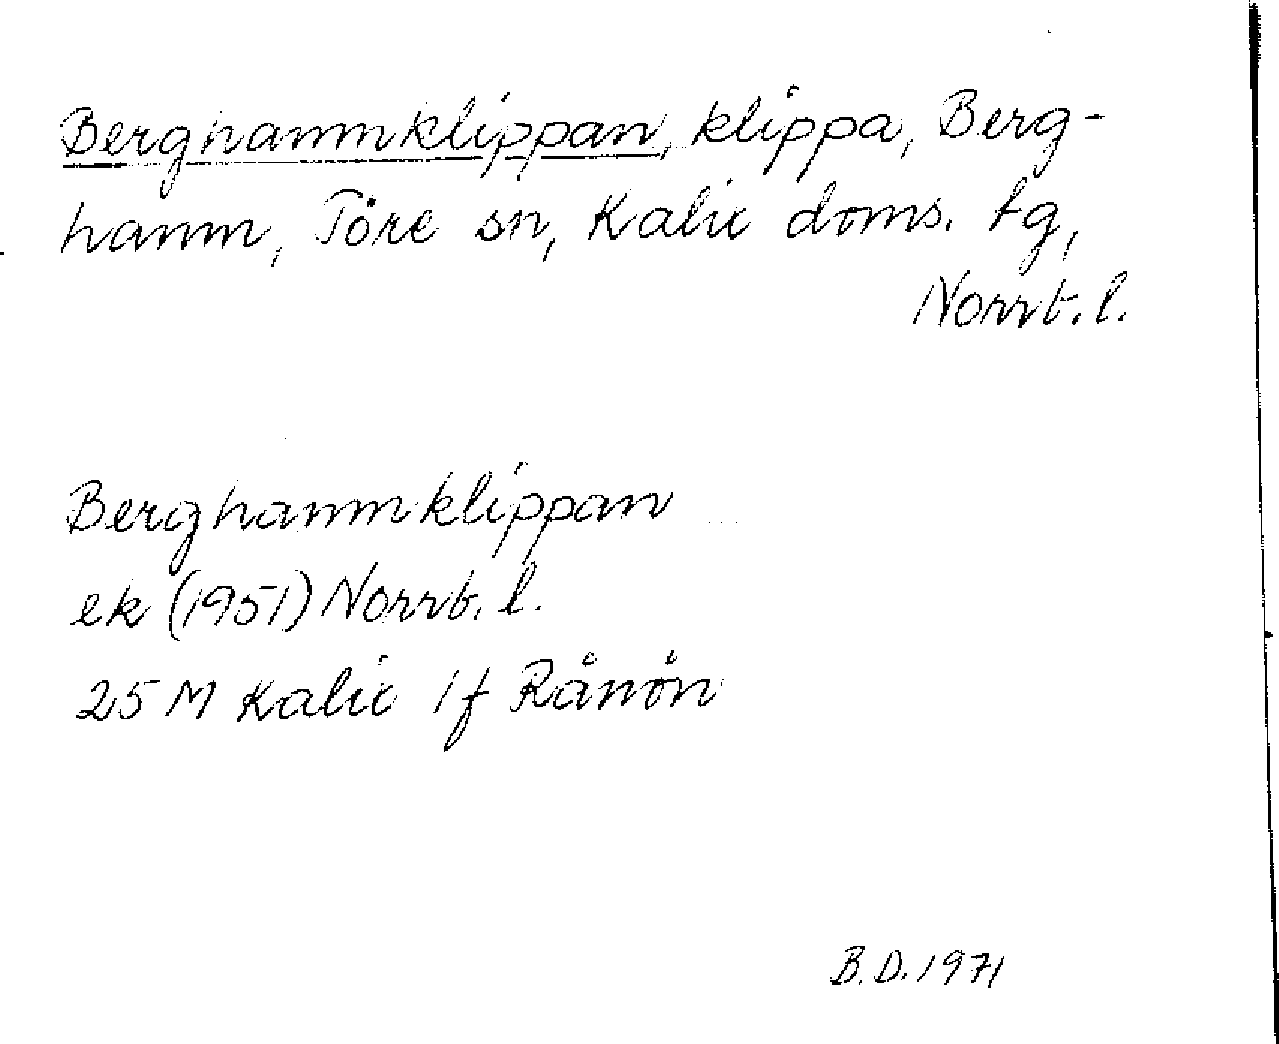 Berghamnklippan, klippa, Berg-
hamn, Töre sn, Kalix doms. tg,
Norrb. l.
Berghamnklippan
ek (1951) Norrb. l.
25 M Kalix 1 f Rånön
B.D. 1971